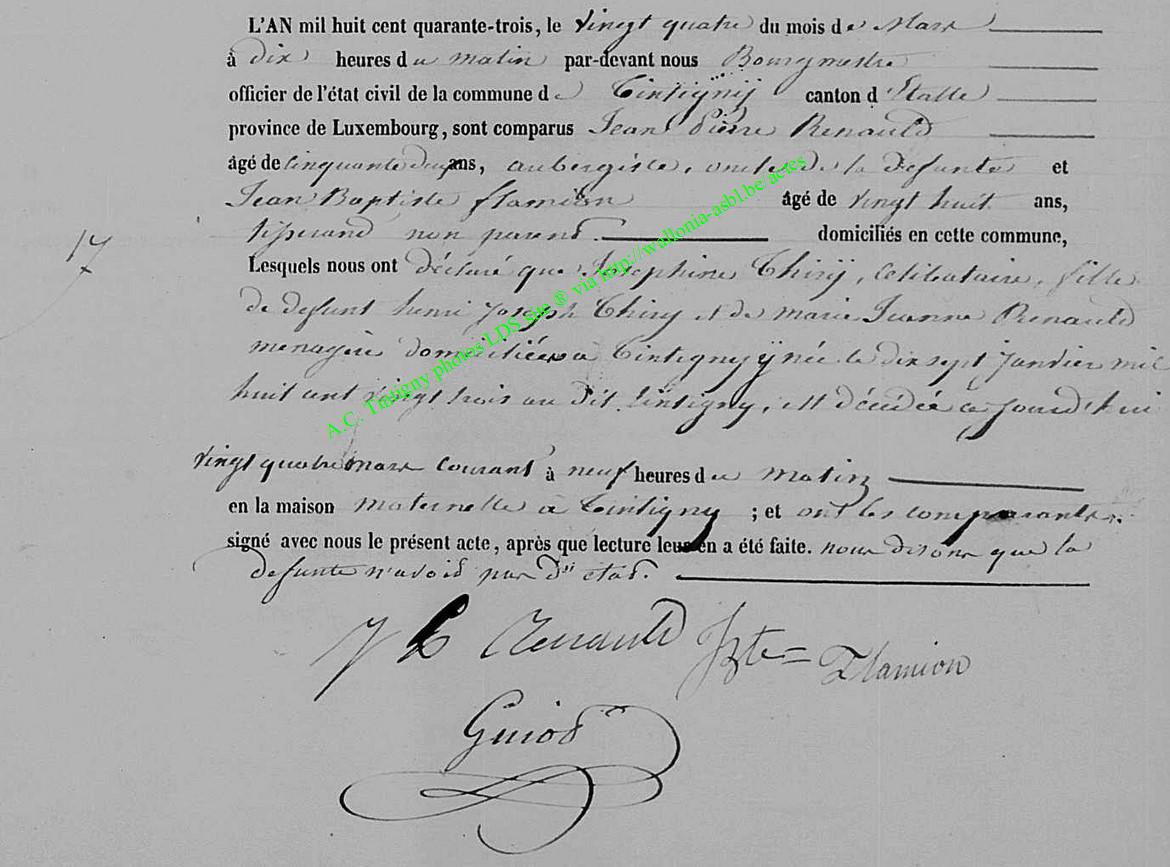 L'AN mil huit cent quarante-trois, le vingt quatre du mois de Mars
à dix heures du matin par-devant nous Bourgmestre
officier de l'état civil de la commune de Tintigny canton d'Etalle
province de Luxembourg, sont comparus Jean Pierre Renauld
âgé de cinquante deux ans, aubergiste, oncle de la defunte et
Jean Baptiste flamion âgé de vingt huit ans,
17
tisserand non parent. domiciliés en cette commune,
Lesquels nous ont déclaré que Josephine Thiry, celibataire, fille
de defunt henri Joseph Thiry et de marie Jeanne Renauld
menagère domiciliée à Tintigny y née le dix sept Janvier mil
huit cent vingt trois au dit tintigny, est décédée ce jourd'hui
vingt quatre mars courant à neuf heures du matin
en la maison maternelle à Tintigny ; et ont les comparants
signé avec nous le présent acte, après que lecture leur en a été faite. nous disons que la
defunte n'avoit pas d' etat.
J P Renauld JBte= Flamion
Guiot
A.C. Tintigny photos LDS site ® via http://wallonia-asbl.be/actes